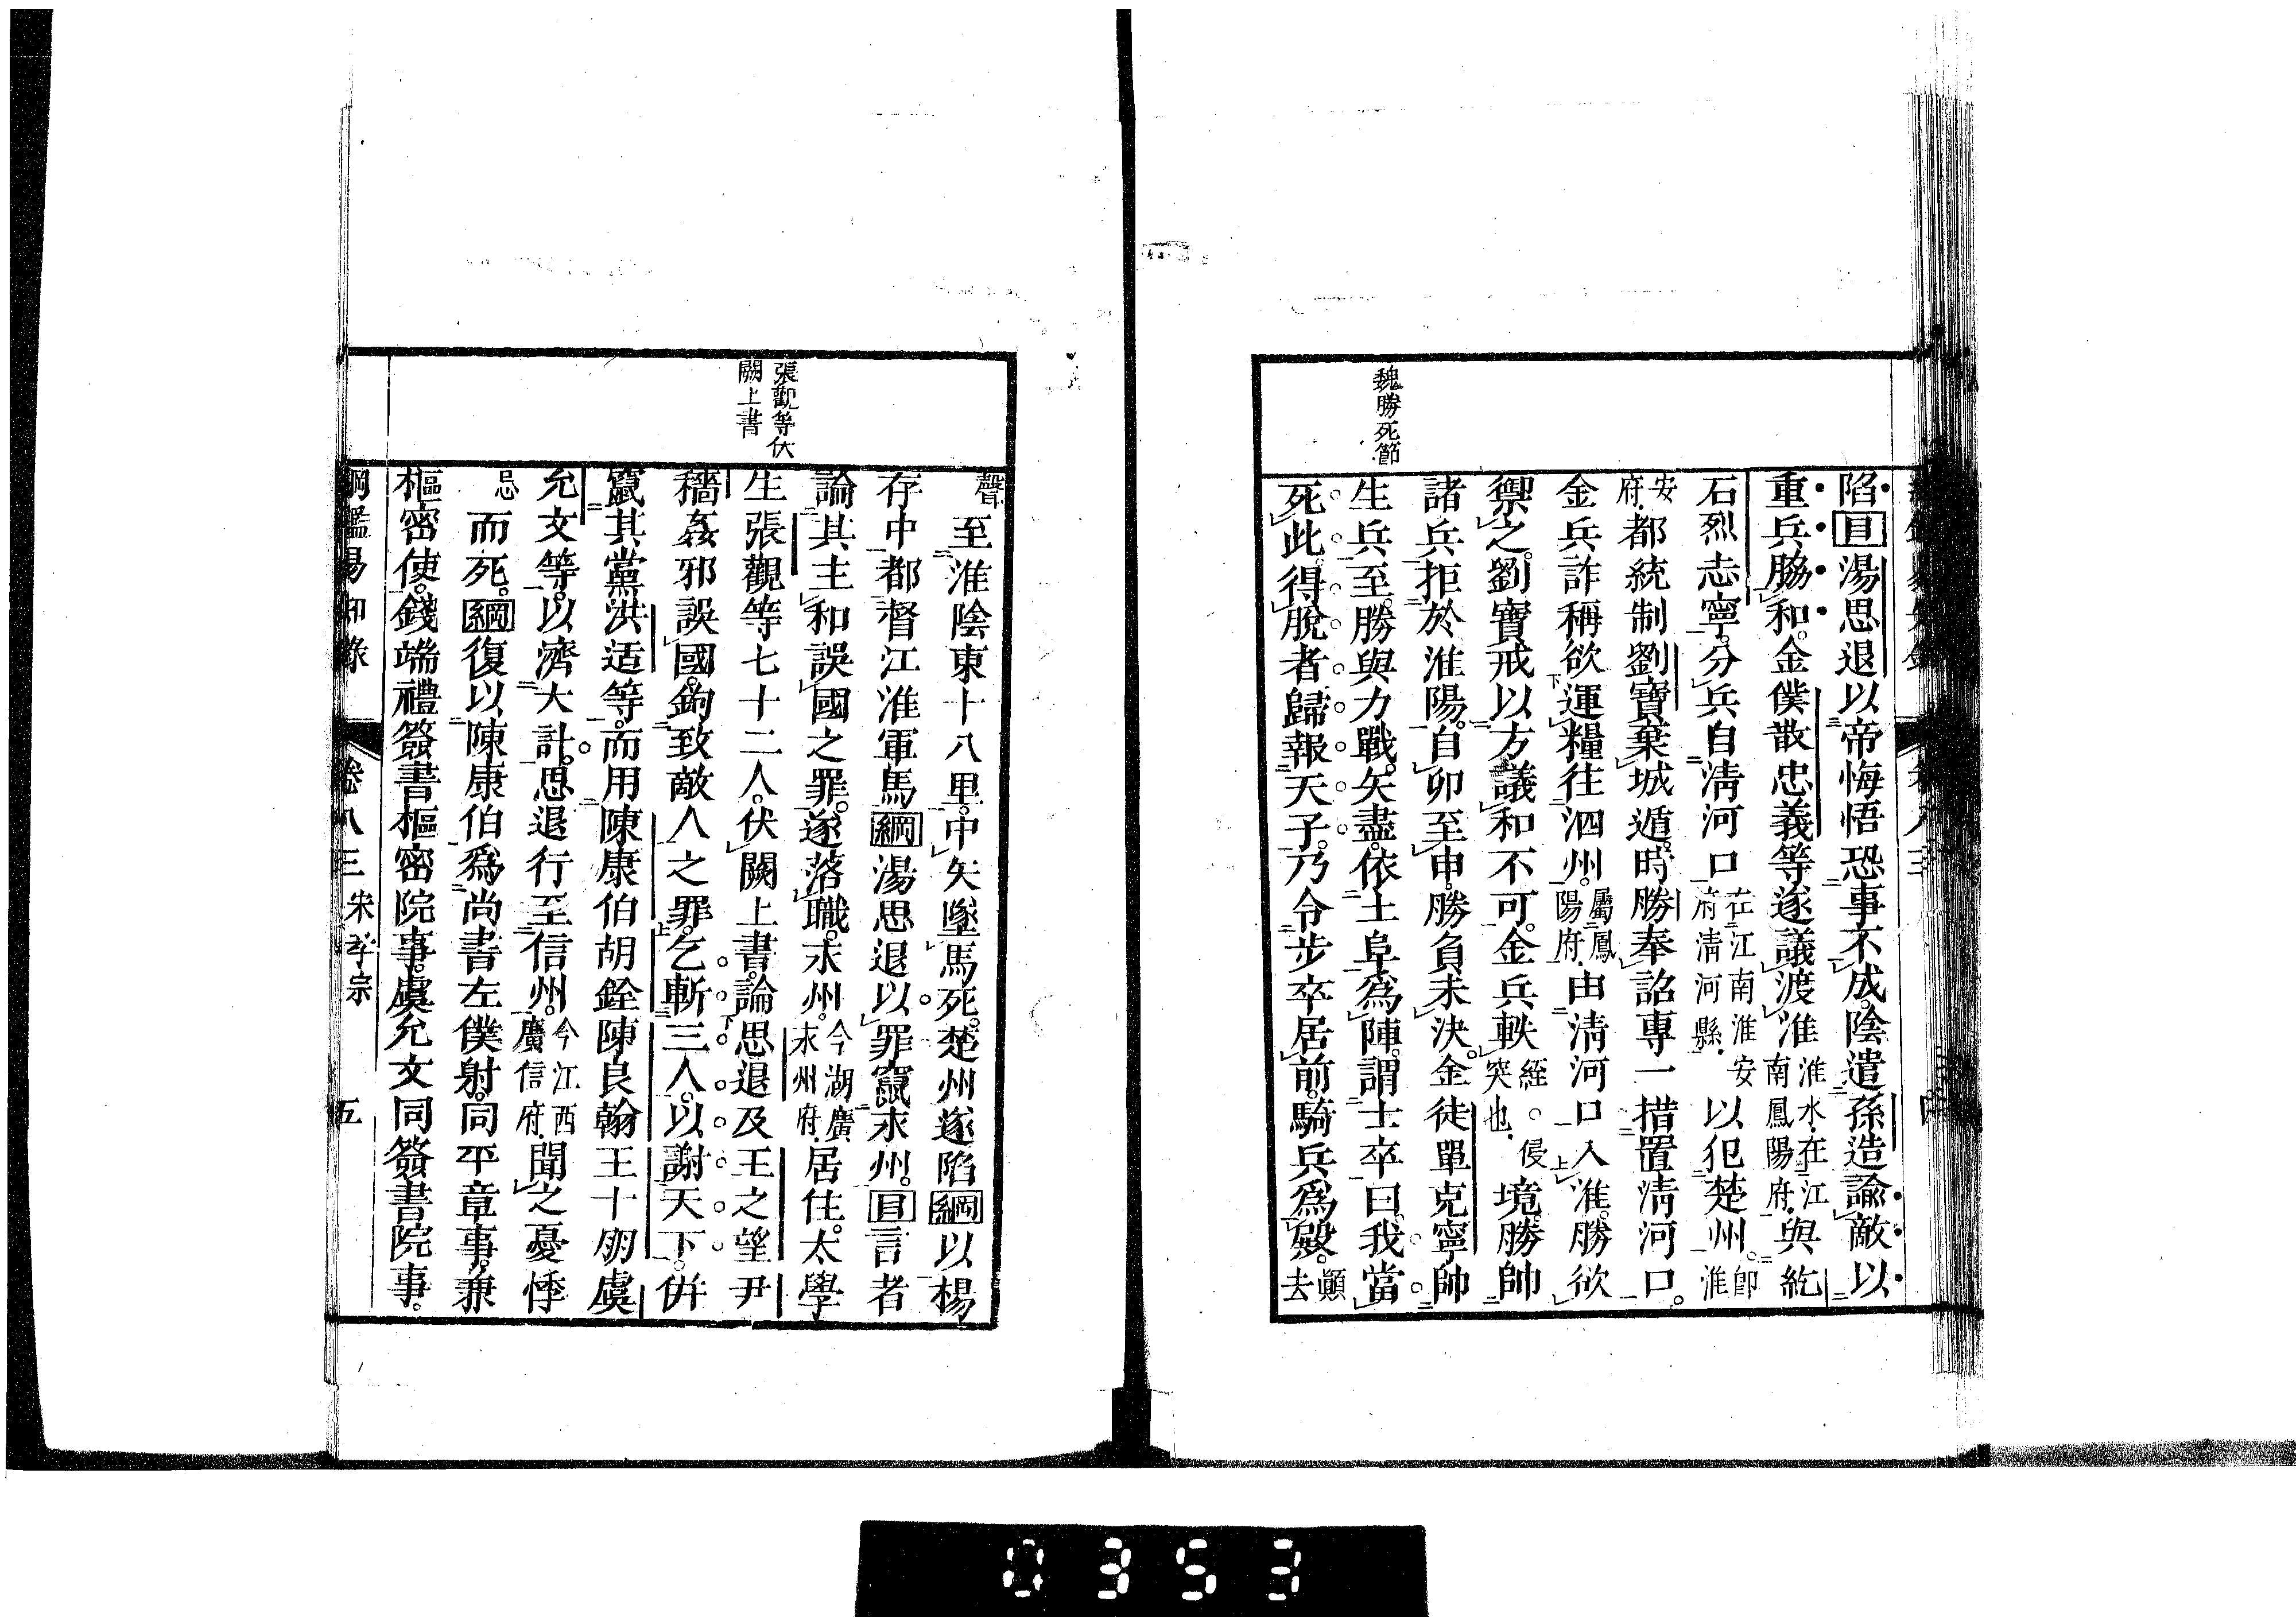 魏勝死節
陷目湯思退以帝悔悟恐事不成陰遣孫造諭敵以
重兵脇和。金僕散忠義等遂議渡淮淮水在江南鳳陽府與紇
石烈志寧。分兵自清河口在江南淮安府清河縣以犯楚州。即淮
安府都統制劉寶棄城遁。時勝奉詔專一措置清河口。
金兵詐稱欲運糧往泗州。屬鳳陽府由清河口入淮。勝欲
禦之。劉寶戒以方議和不可。金兵軼經。侵突也境。勝帥
諸兵拒於淮陽。自卯至申。勝負未決。金徒單克寧帥
生兵至。勝與力戰。矢盡。依土阜為陣。謂士卒曰。我當
死此。得脫者歸報天子。乃令步卒居前。騎兵為殿。顛去
張觀等伏
闕上書
聲至淮陰東十八里。中矢墜馬死。楚州遂陷綱以楊
存中都督江淮軍馬綱湯思退以罪竄永州。目言者
論其主和誤國之罪。遂落職。永州。今湖廣永州府居住。太學
生張觀等七十二人。伏闕上書。論思退及王之望尹
穡姦邪誤國。鉤致敵人之罪。乞斬三人。以謝天下。併
竄其黨洪适等。而用陳康伯胡銓陳良翰王十朋虞
允文等。以濟大計。思退行至信州。今江西廣信府聞之憂悸
忌而死。綱復以陳康伯為尚書左僕射。同平章事。兼
樞密使。錢端禮簽書樞密院事。虞允文同簽書院事。
綱鑑易知錄 卷八三 宋孝宗 五